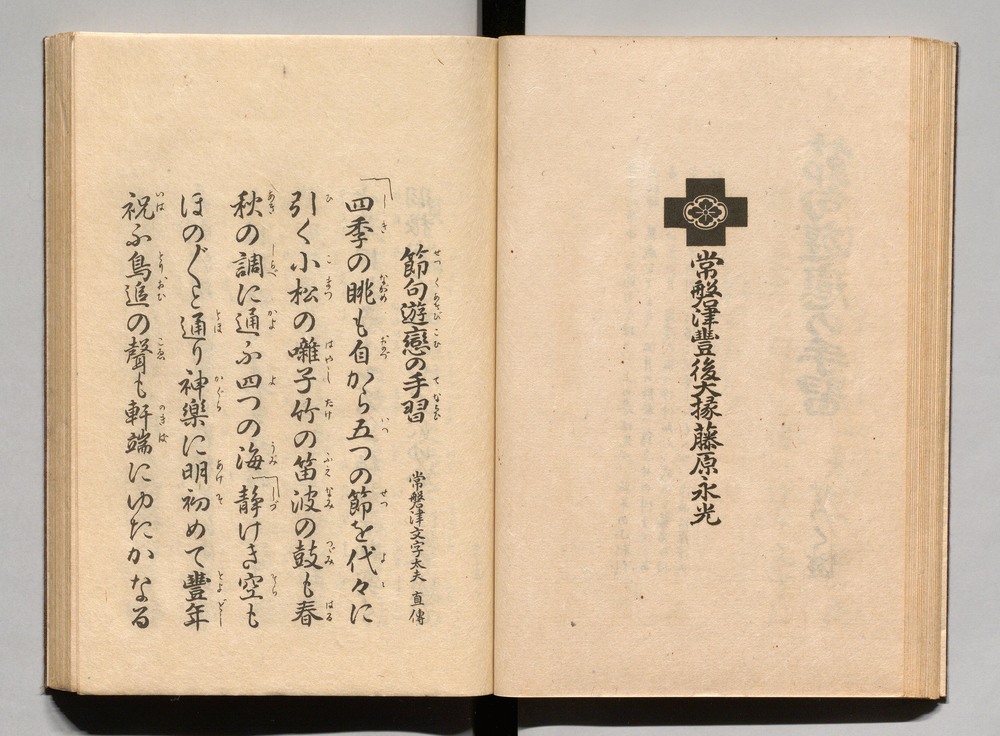 常磐津豐後大掾藤原永光
節句遊戀の手習
常磐津文字太夫 直傳
四季の眺も自から五つの節を代々に
引く小松の囃子竹の笛波の鼓も春
秋の調に通ふ四つの海静けき空も
ほの〴〵と通り神樂に明初めて豐年
祝ふ鳥追の聲も軒端にゆたかなる